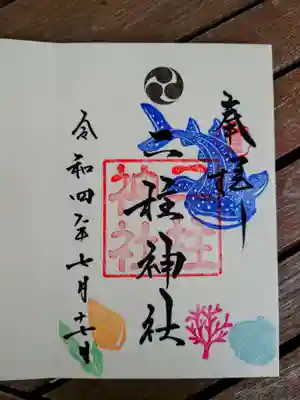 奉拝
二柱神社
二柱
神社
令和四年七月十七日